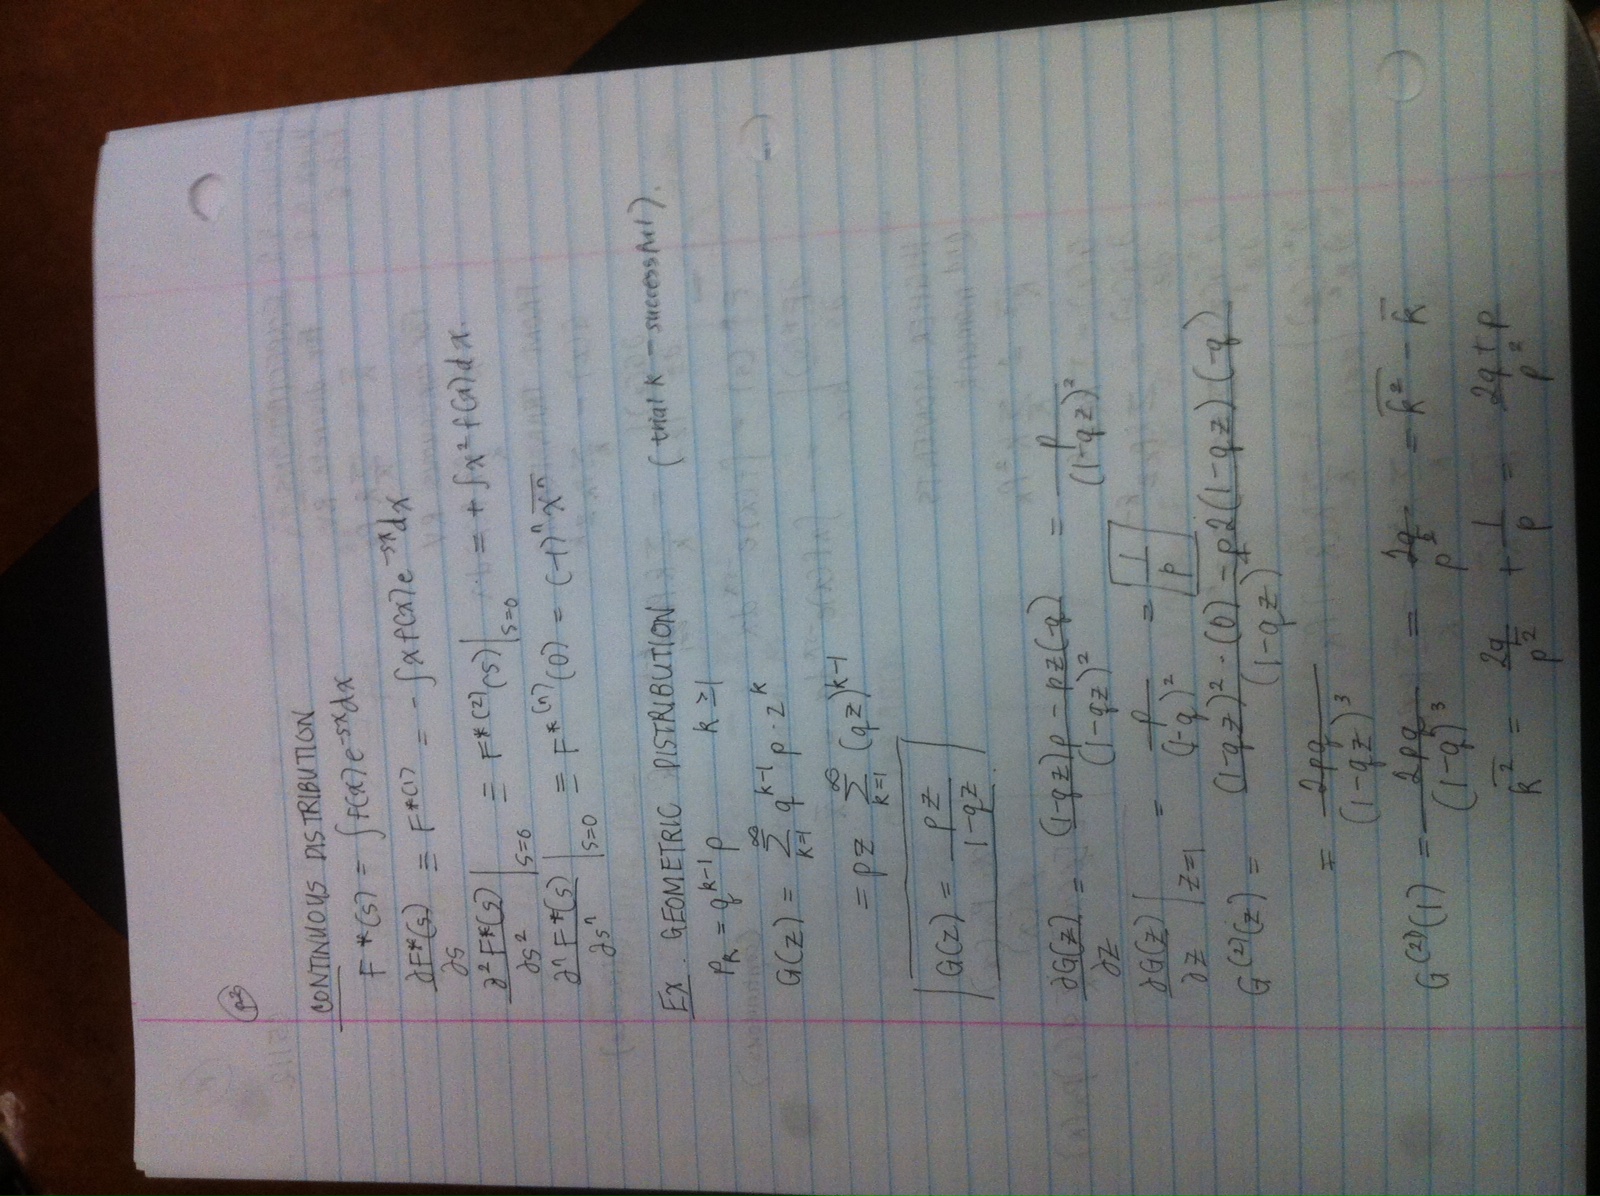 p2
CONTINUOUS DISTRIBUTION
F*(s) = ∫f(x)e^{-sx}dx
∂F*(s)/∂s ≡ F*^{(1)} = -∫x f(x)e^{-sx}dx
∂²F*(s)/∂s² |_{s=0} ≡ F*^{(2)}(s)|_{s=0} = +∫x² f(x)dx.
∂ⁿF*(s)/∂sⁿ |_{s=0} ≡ F*^{(n)}(0) = (-1)ⁿ x̅ⁿ̅
Ex. GEOMETRIC DISTRIBUTION (trial k - successful).
P_k = q^{k-1} p k ≥ 1
G(z) = ∑_{k=1}^{∞} q^{k-1} p · z^k
= pz ∑_{k=1}^{∞} (qz)^{k-1}
G(z) = pz/(1-qz)
∂G(z)/∂z = ((1-qz)p - pz(-q))/(1-qz)² = p/(1-qz)²
∂G(z)/∂z |_{z=1} = p/(1-q)² = 1/p
G^{(2)}(z) = ((1-qz)² · (0) - p2(1-qz)(-q))/(1-qz)⁴
= 2pq/(1-qz)³
G^{(2)}(1) = 2pq/(1-q)³ = 2q/p² = k̅²̅ - k̅
k̅²̅ = 2q/p² + 1/p = (2q+p)/p²